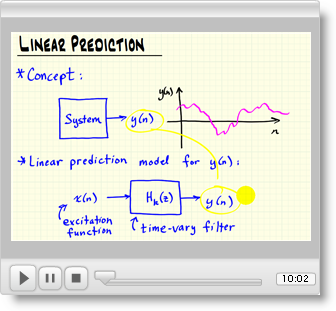 LINEAR PREDICTION
* Concept :
System
y(n)
y(n)
n
* Linear prediction model for y(n) :
x(n)
H k (z)
y(n)
excitation
function
time-vary filter
10:02